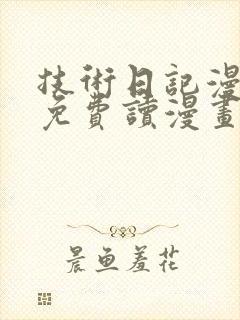 技術日記漫
免費讀漫畫
晨魚羞花